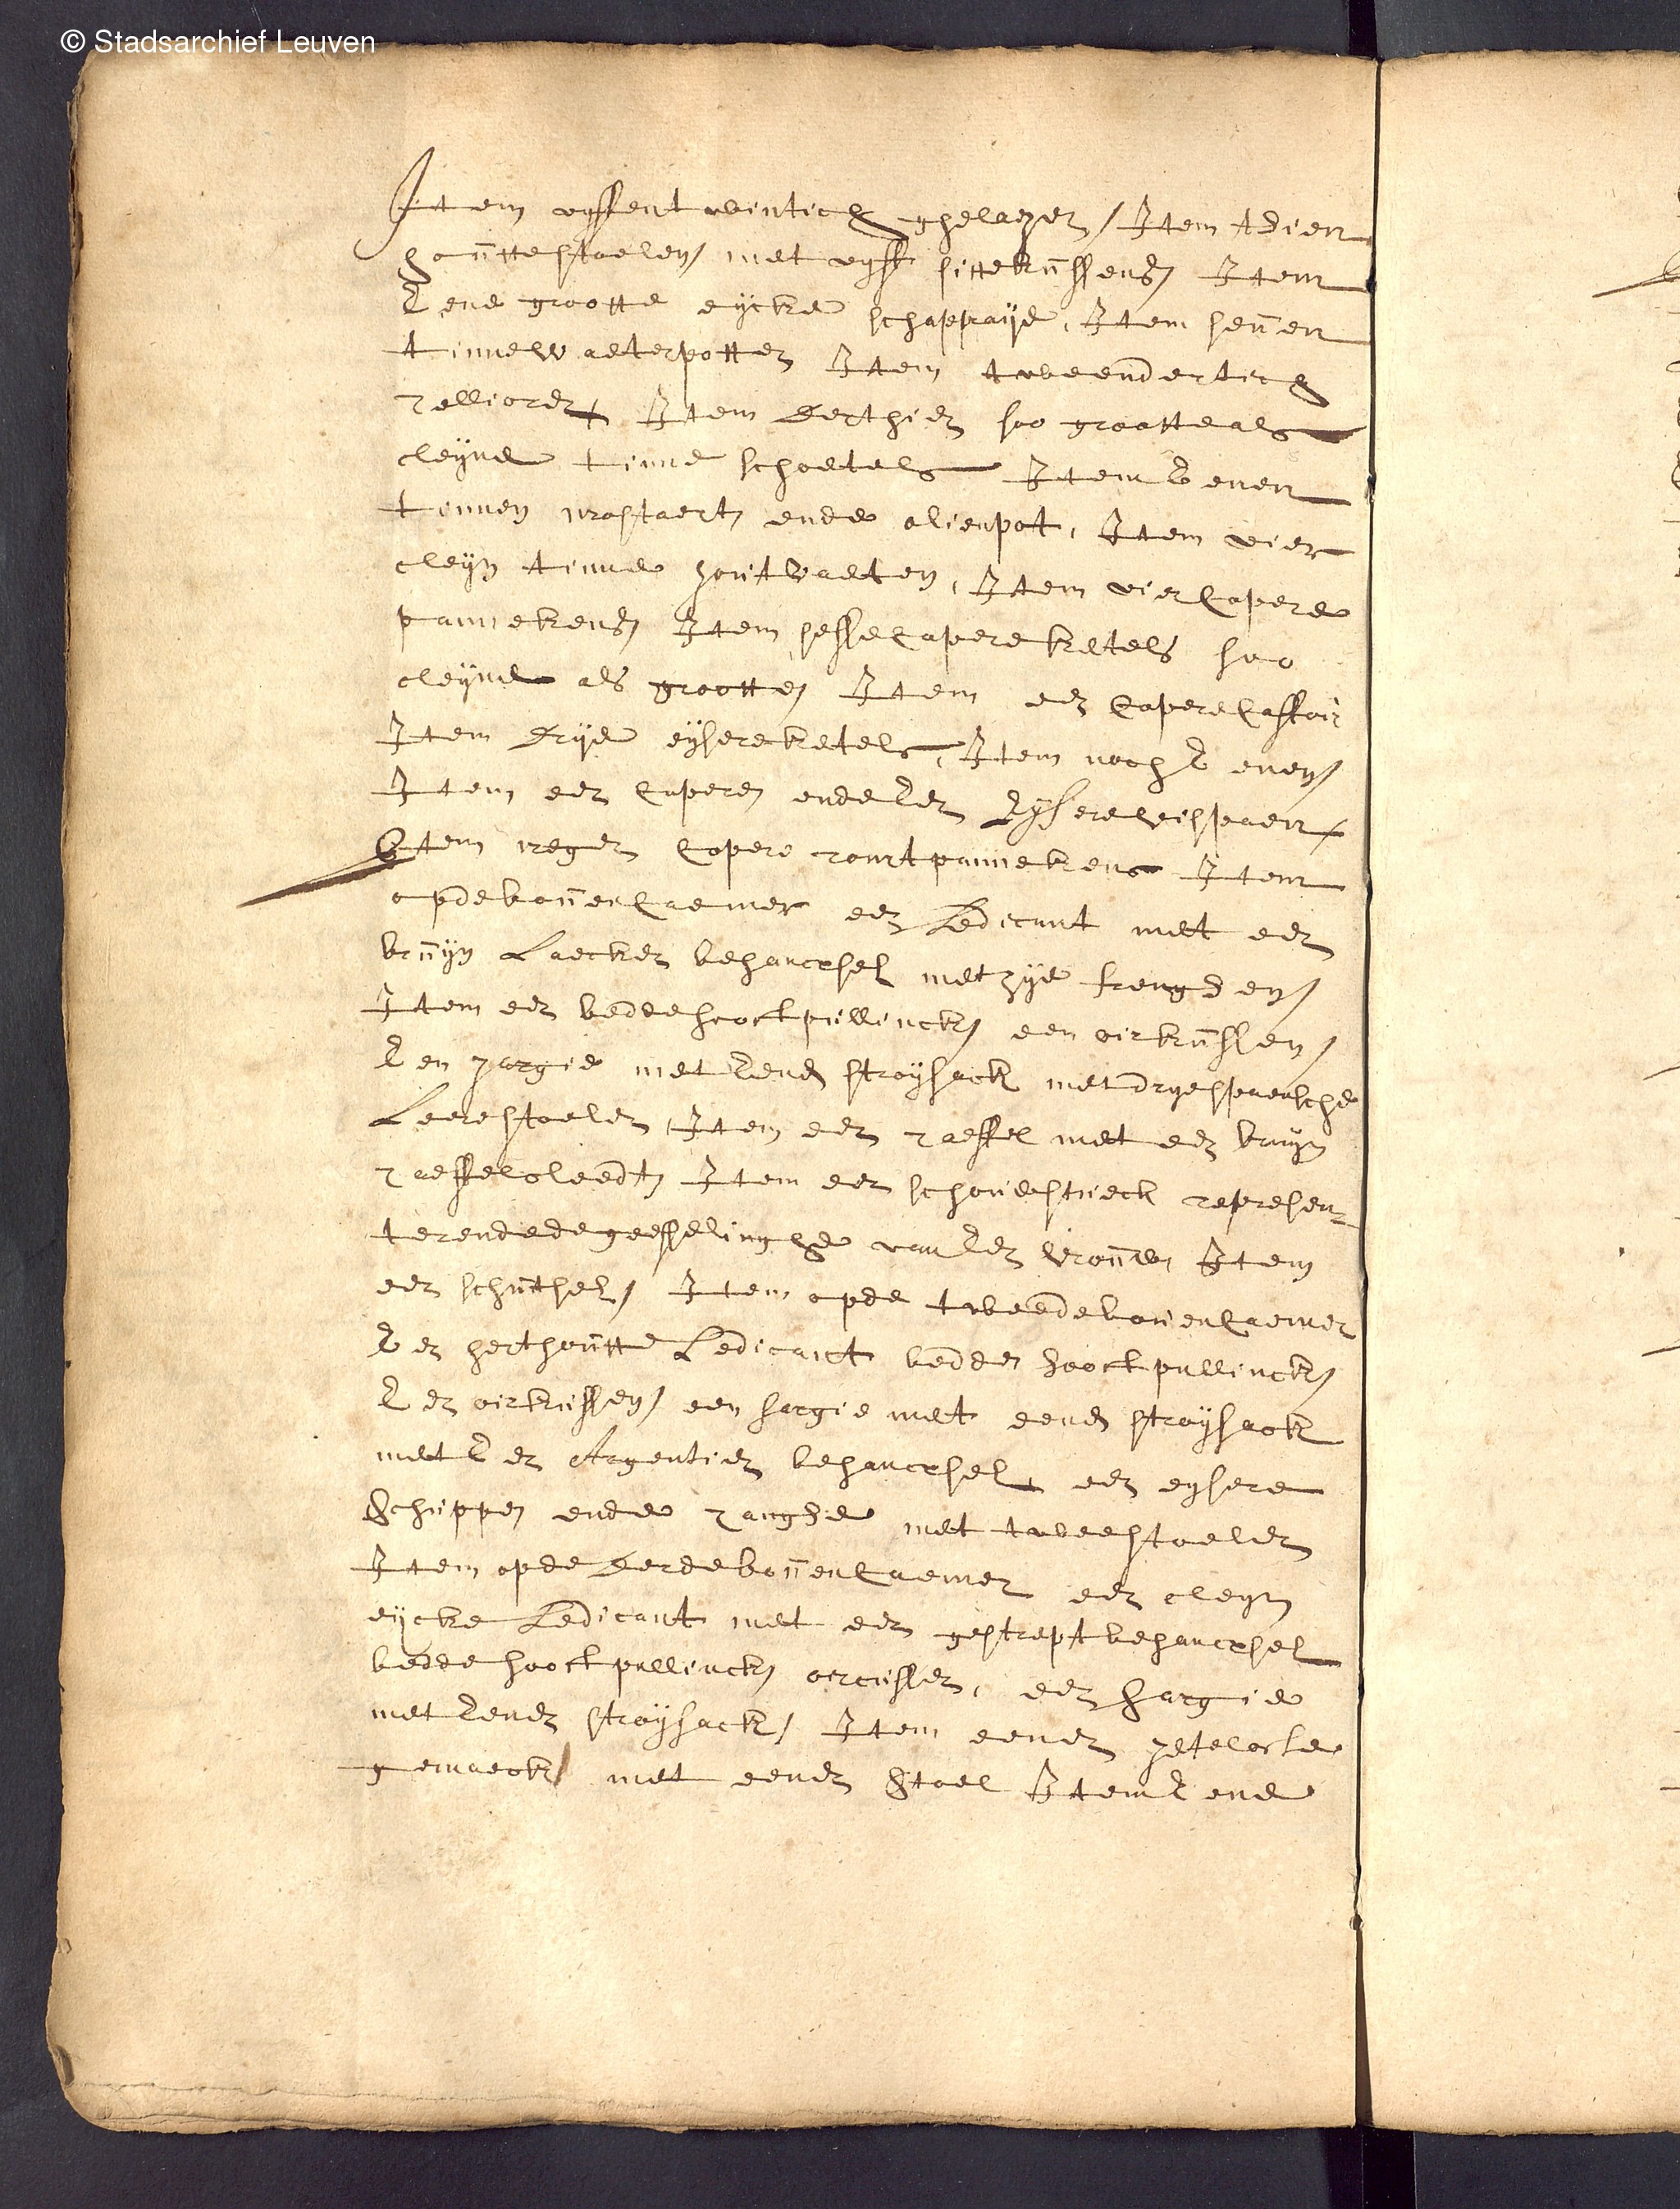 © Stadsarchief Leuven
Item vyffentwintich ghelaezen / Item thien
houttestoelen / met vyff sittekussens / Item
eene grootte eycke schappraye, Item seven
tinne waeterpotten Item tweendertich
tellioren Item derthien soo grootte als
cleyne tinne schoetels Item eenen
tinnen mostaert ende oliepot, Item vier
cleyn tinne soutvaeten, Item vier copere
pannekens / Item sesse copere ketels soo
cleyne als grootte / Item een copere caffoir
Item drye eysere ketels, Item noch eenen /
Item een coperen ende een eysere vispaen
Item negen copere tourtpannekens Item
opde bovencaemer een ledicant met een
bruyn laecken behancxsel met zyde frengden /
Item een bedde hooctpullinck / een oirkussen /
een zargie met eenen stroysack met drye spaensche
leerestoelen, Item een taeffel met een bruyn
taeffelcleedt / Item een schouwstuck represen-
terende de geesselinghe van een vrouw Item
een schuthel / Item opde tweede bovencaemer
een herthoutte ledicant bedde hooctpullinck /
een oirkussen / een sargie met eenen stroysack
met een argentien behancxsel een eysere
schuppe ende tanghe met twee stoelen
Item opde derde bovencaemer een cleyn
eycke ledicant met een gestrept behancxsel
bedde hooctpullinck / oircussen, een sargie
met eenen stroysack / Item eenen
gemaeck / met eenen stoel Item eene